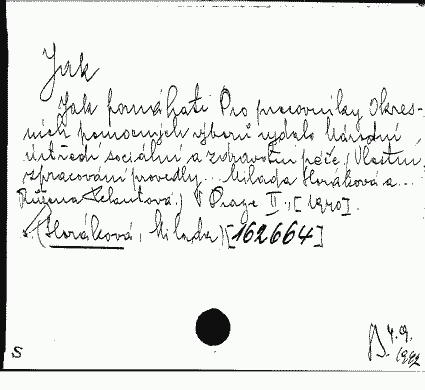 Jak
Jak pomáhati Pro pracovníky Okres-
ních pomocných výborů vydalo Národní
ústředí sociální a zdravotní péče, Vlastní
zpracování provedly... Milada Horáková a...
Růžena Pelantová,) V Praze II., [1940].
(Horáková, Milada) [162664]
4.9.
1942
S